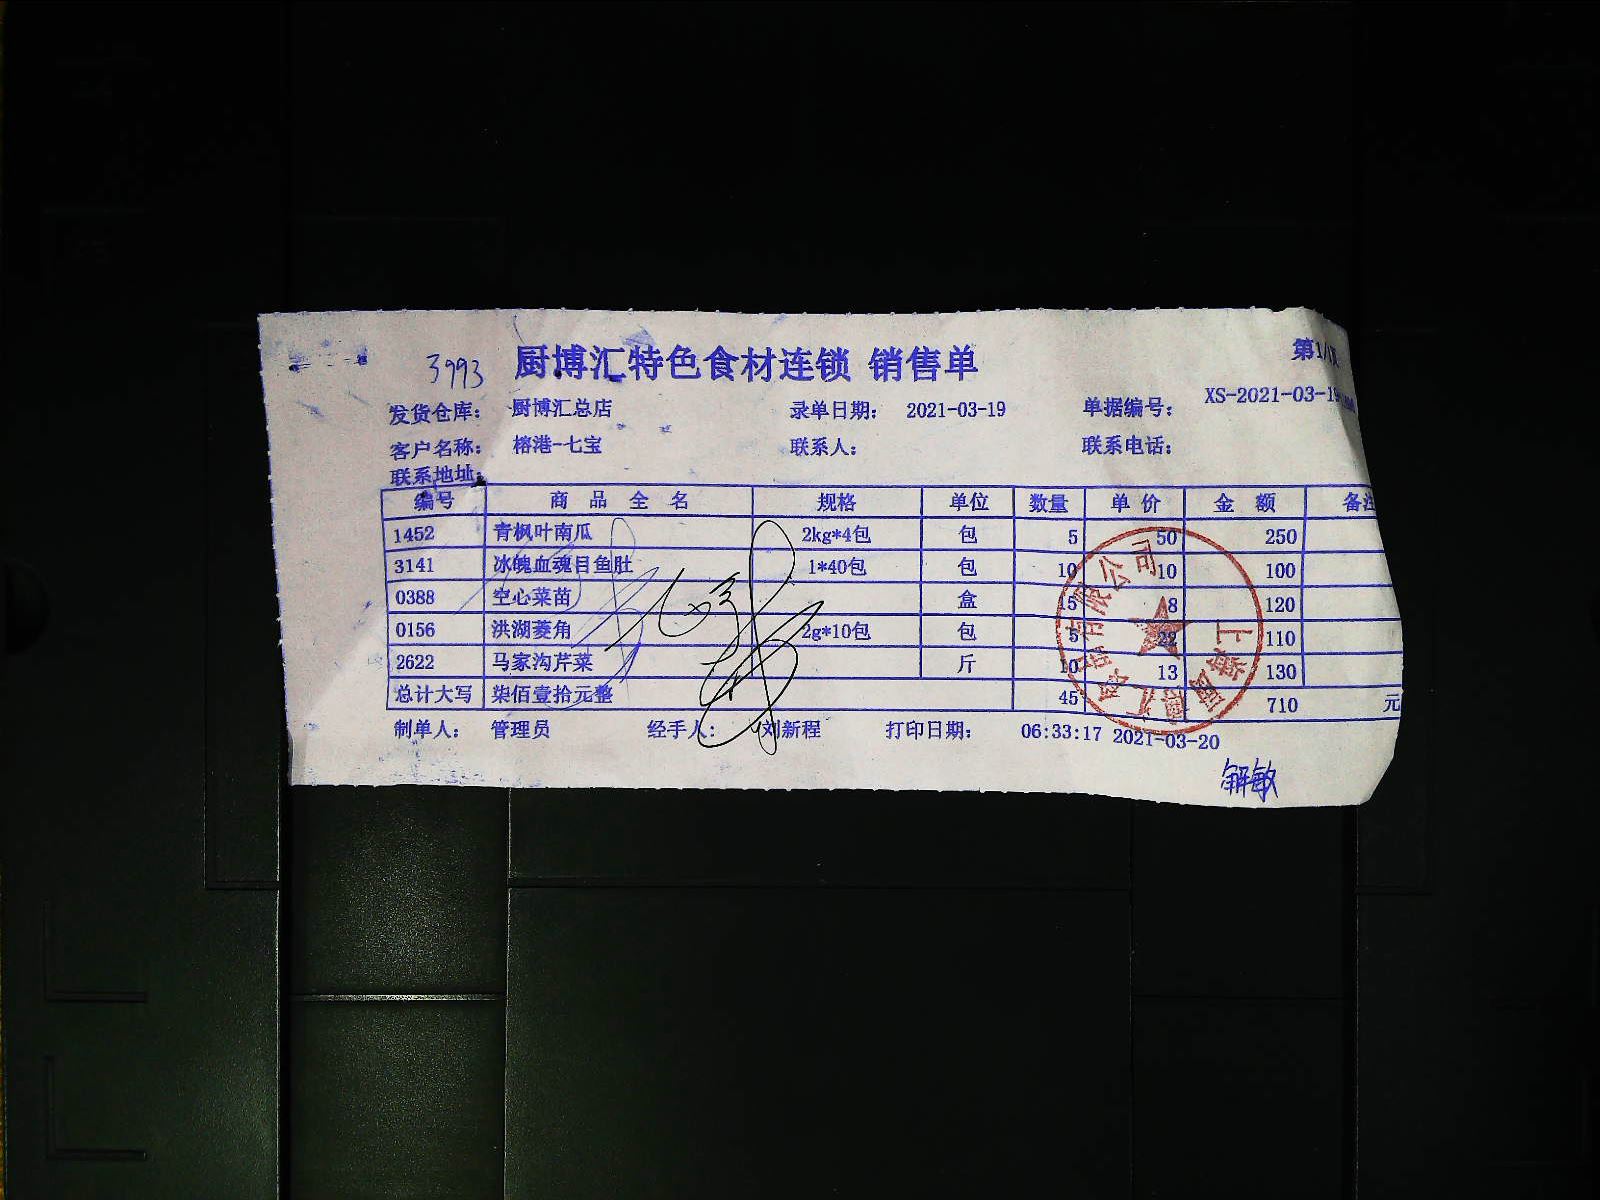 3993 厨博汇特色食材连锁 销售单 第1/
发货仓库： 厨博汇总店 录单日期： 2021-03-19 单据编号： XS-2021-03-19
客户名称： 榕港-七宝 联系人： 联系电话：
联系地址：
编号 商品全名 规格 单位 数量 单价 金额 备注
1452 青枫叶南瓜 2kg*4包 包 5 50 250
3141 冰魄血魂目鱼肚 1*40包 包 10 10 100
0388 空心菜苗 盒 15 8 120
0156 洪湖菱角 2g*10包 包 5 22 110
2622 马家沟芹菜 斤 10 13 130
总计大写 柒佰壹拾元整 45 710 元
制单人： 管理员 经手人： 刘新程 打印日期： 06:33:17 2021-03-20
解敏